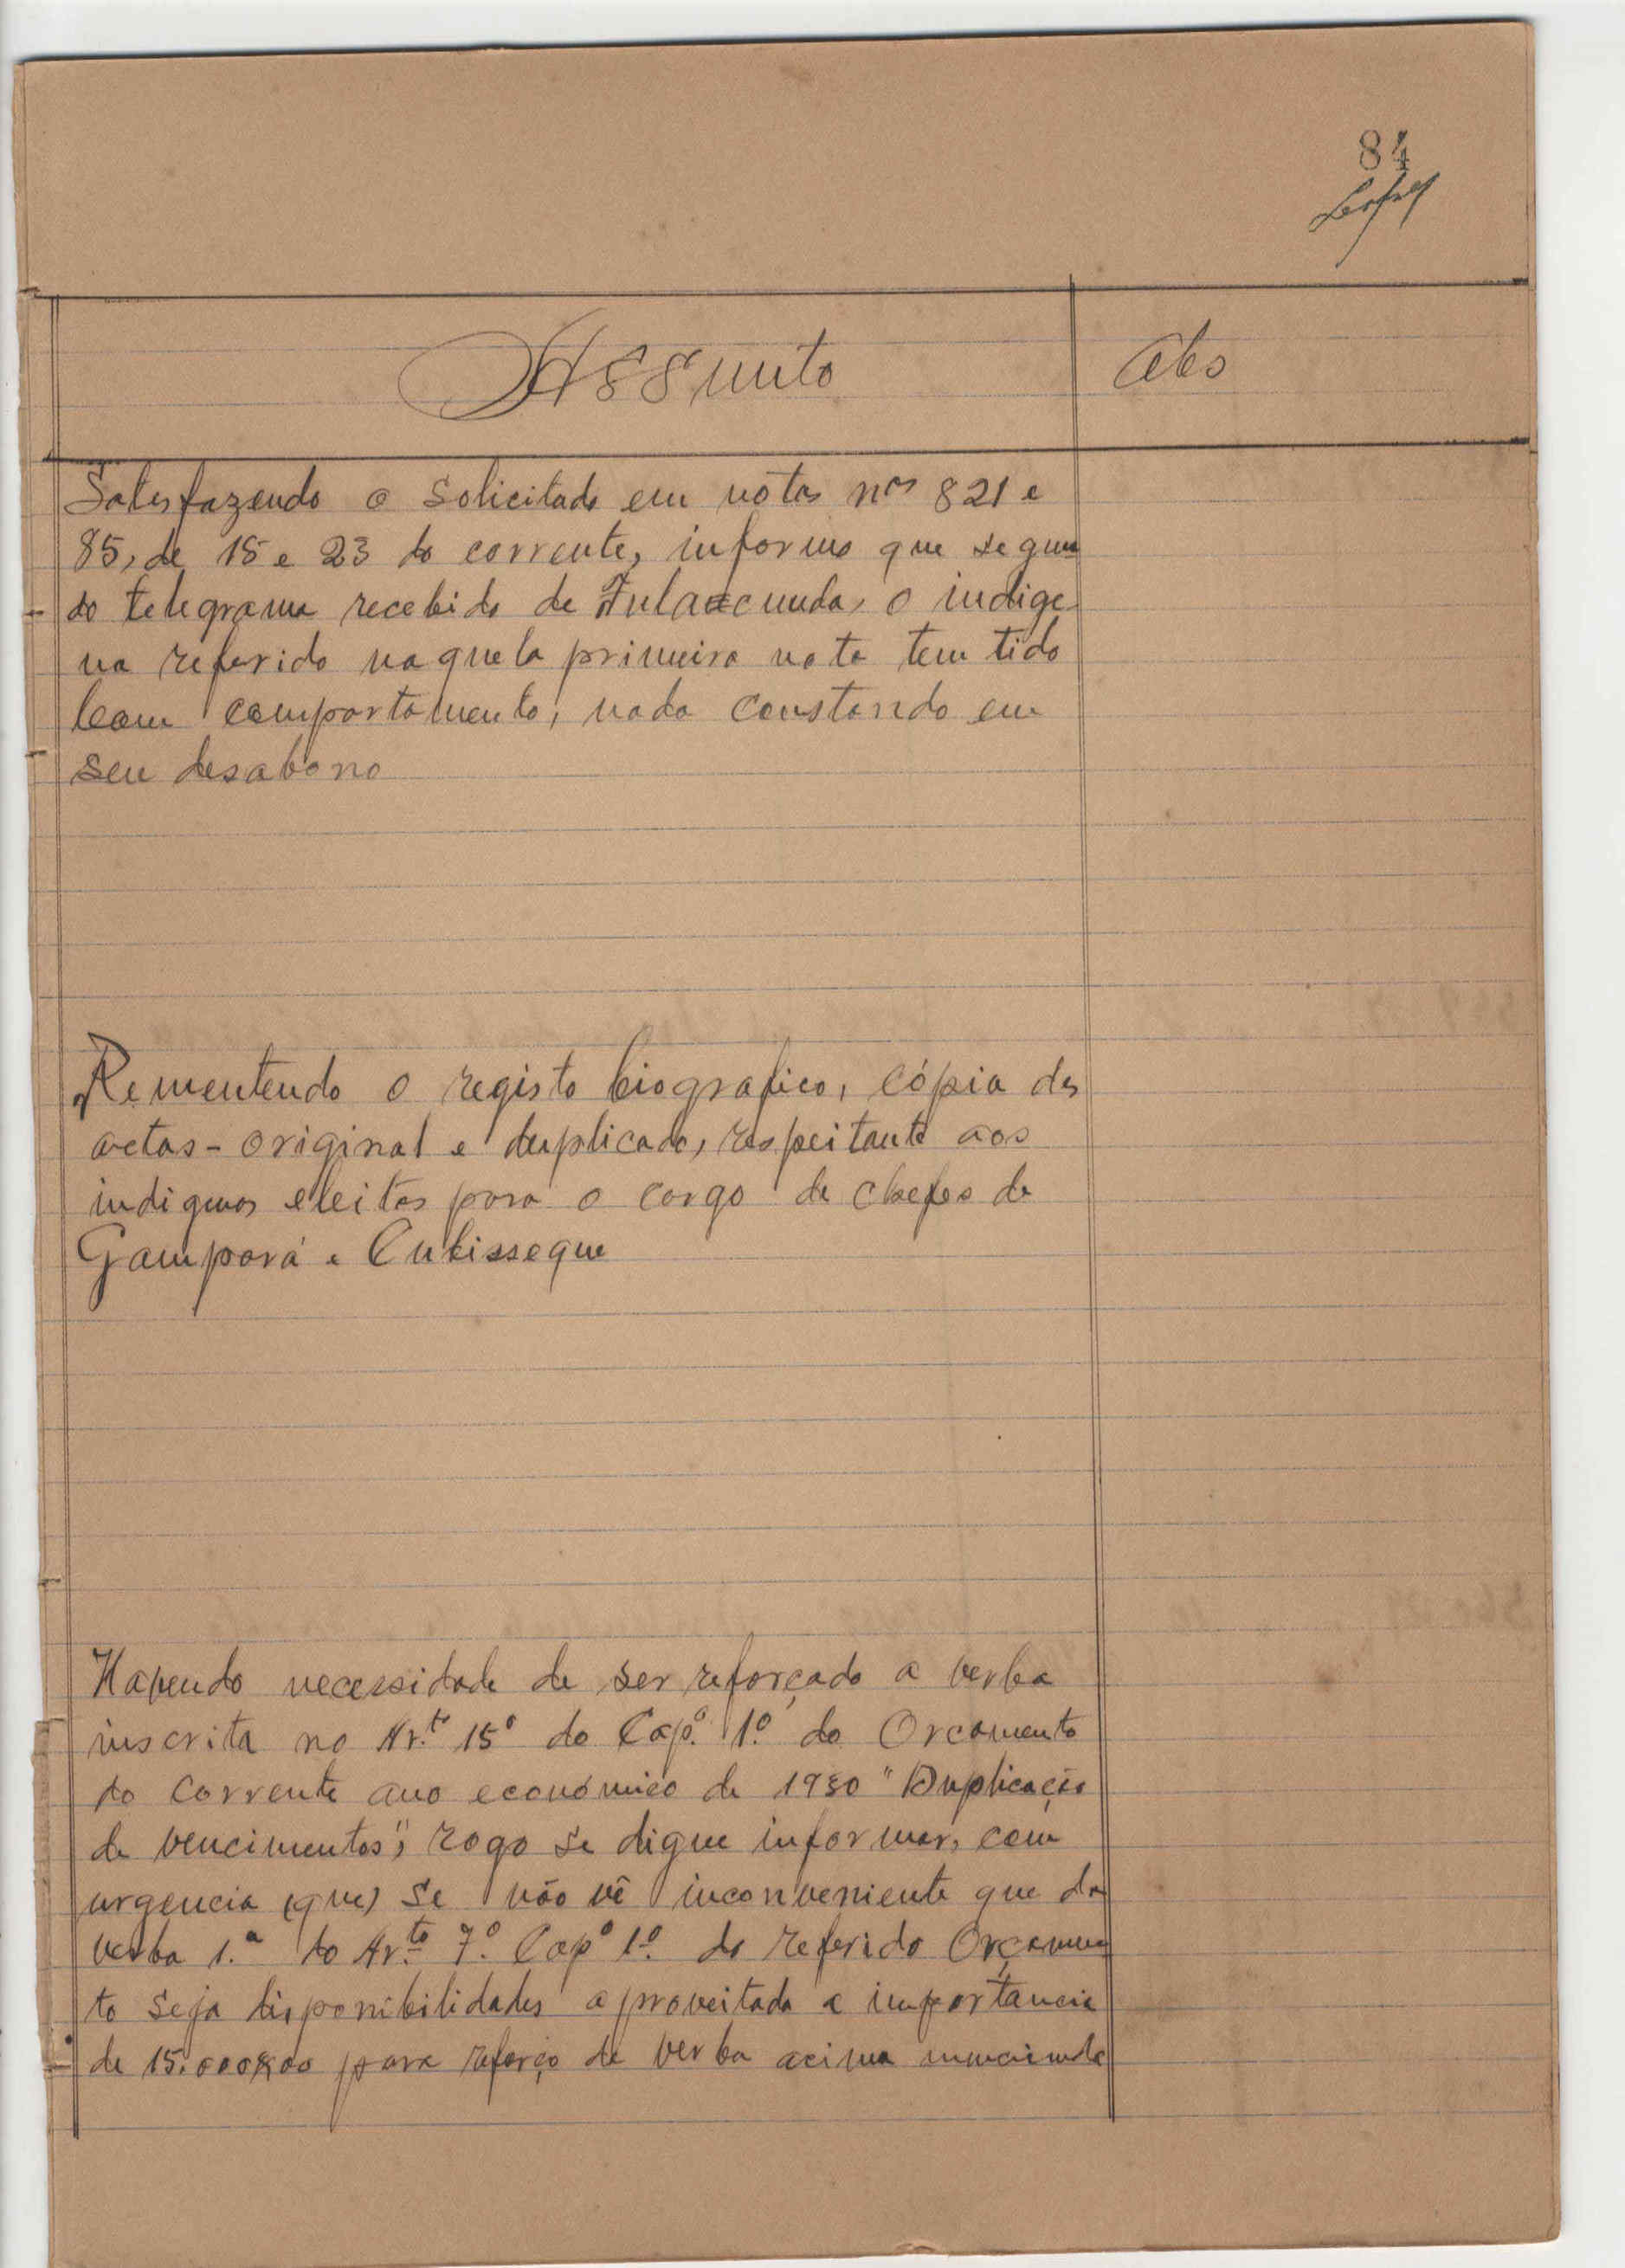 84
Assunto
Obs
Satisfazendo o solicitado em notas nos 821 e
85, de 15 e 23 do corrente, informo que segun
do telegrama recebido de Fulacunda, o indige-
na referido naquela primeira nota tem tido
bom comportamento, nada constando em
seu desabono
Rementendo o registo biografico, cópia das
actas - original e duplicado, respeitante aos
indigenas eleitos para o cargo de chefes de
Gamporá e Cubisseque
Havendo necessidade de ser reforçado a verba
inscrita no Ar.to 15º do Cap.º 1.º do Orcamento
do corrente ano económico de 1930 "Duplicação
de vencimentos", rogo se digne informar, com
urgencia (que) se não vê inconveniente que da
verba 1.ª do Ar.to 7.º Capº 1.º do referido Orçamen
to seja disponibilidades aproveitada a importancia
de 15.000$00 para reforço de verba acima